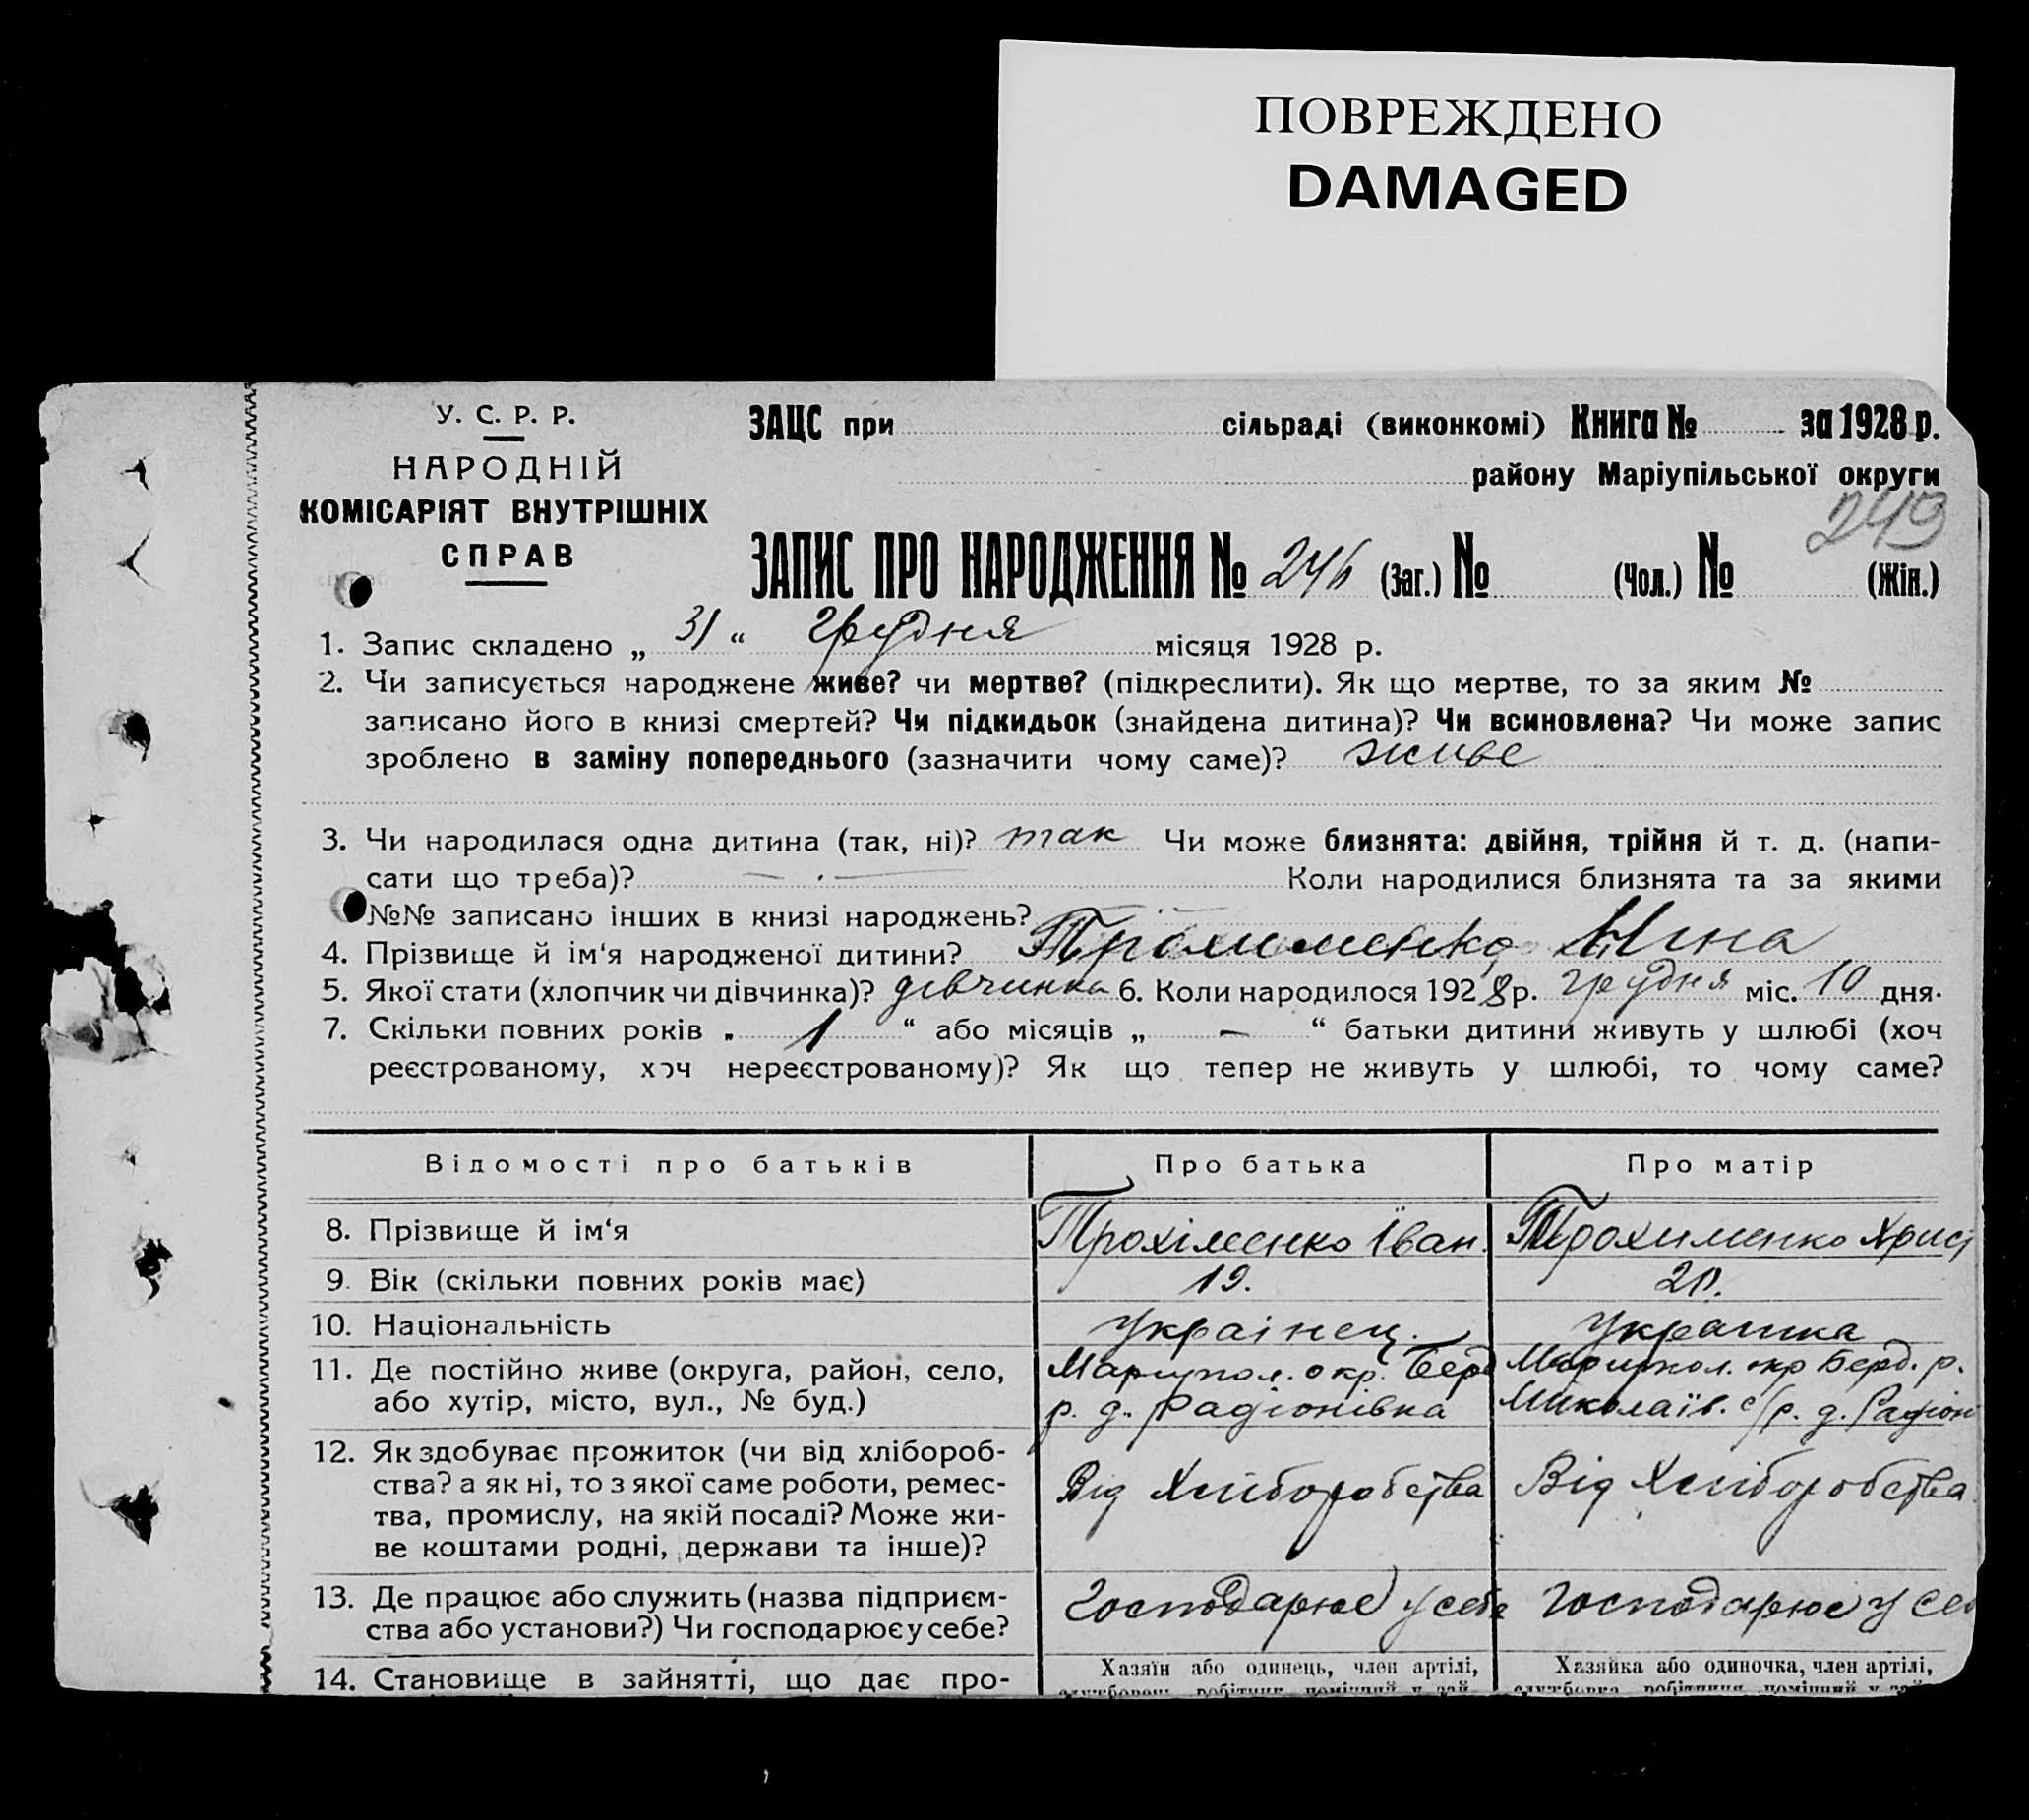 ПОВРЕЖДЕНО
DAMAGED
У. С. Р. Р.
НАРОДНІЙ
КОМІСАРІЯТ ВНУТРІШНІХ
СПРАВ
ЗАЦС при сільраді (виконкомі) Книга № за 1928 р.
району Маріупільської округи
249
ЗАПИС ПРО НАРОДЖЕННЯ № 246 (Заг.) № (Чол.) № (Жін.)
1. Запис складено „ 31 “ грудня місяця 1928 р.
2. Чи записується народжене живе? чи мертве? (підкреслити). Як що мертве, то за яким №
записано його в книзі смертей? Чи підкидьок (знайдена дитина)? Чи всиновлена? Чи може запис
зроблено в заміну попереднього (зазначити чому саме)? живе
3. Чи народилася одна дитина (так, ні)? так Чи може близнята: двійня, трійня й т. д. (напи-
сати що треба)? — . — Коли народилися близнята та за якими
№№ записано інших в книзі народжень?
4. Прізвище й ім‘я народженої дитини? Трохименко Нина
5. Якої стати (хлопчик чи дівчинка)? дівчинка 6. Коли народилося 1928 р. грудня міс. 10 дня.
7. Скільки повних років „ 1 “ або місяців „ — “ батьки дитини живуть у шлюбі (хоч
реєстрованому, хоч нереєстрованому)? Як що тепер не живуть у шлюбі, то чому саме?
Відомості про батьків Про батька Про матір
8. Прізвище й ім‘я Трохіменко Іван. Трохименко Христ
9. Вік (скільки повних років має) 19. 20.
10. Національність Українец. Украинка
11. Де постійно живе (округа, район, село, Мариупол. окр. Берд Мариупол. окр Берд. р.
або хутір, місто, вул., № буд.) р. д. Радіонівка Миколаїв. с/р. д. Радіон
12. Як здобуває прожиток (чи від хлібороб-
ства? а як ні, то з якої саме роботи, ремес- Від Хліборобства Від Хліборобства
тва, промислу, на якій посаді? Може жи-
ве коштами родні, держави та інше)?
13. Де працює або служить (назва підприєм- Господарює у себе Господарює у себ
ства або установи?) Чи господарює у себе?
14. Становище в зайнятті, що дає про- Хазяїн або одинець, член артілі, Хазяйка або одиночка, член артілі,